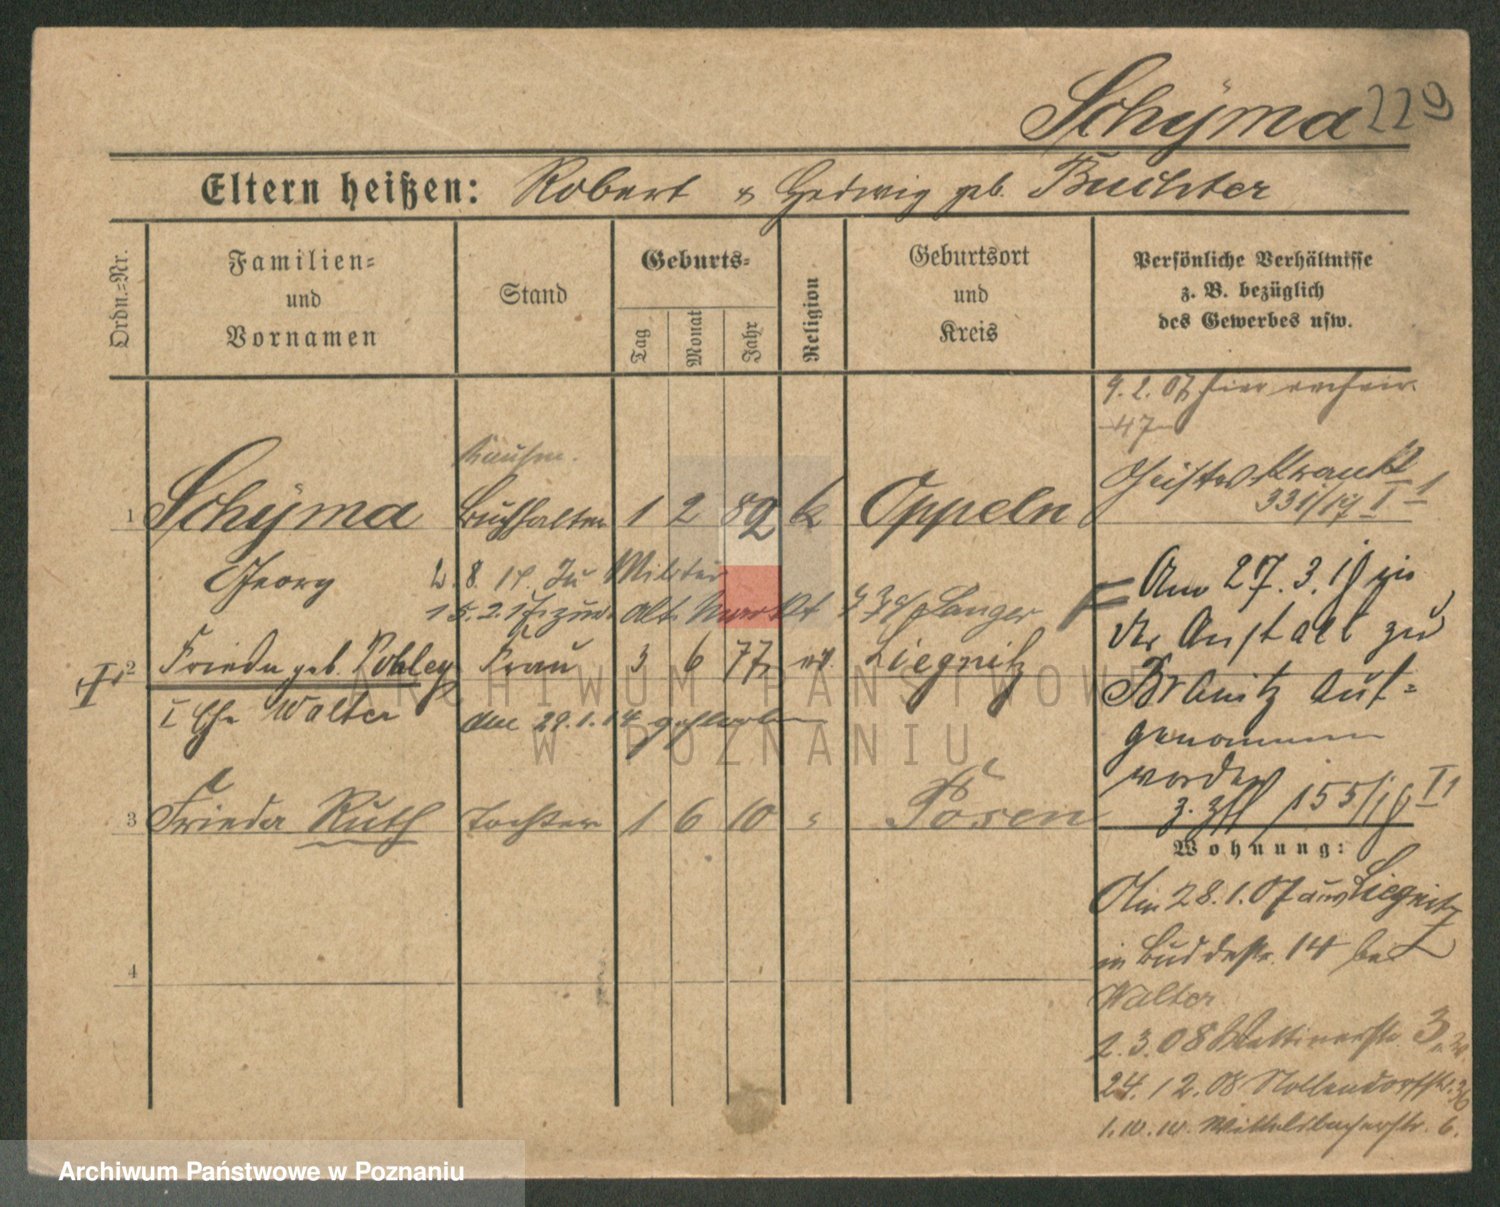 Schÿma 229
Eltern heißen: Robert & Hedwig geb. Buchter
Ordn.-Nr.
Familien-
und
Vornamen
Stand
Geburts-
Tag
Monat
Jahr
Religion
Geburtsort
und
Kreis
Persönliche Verhältnisse
z. B. bezüglich
des Gewerbes usw.
9. 2. 07 hier
47
Kaufm.
1 Schÿma Buchhalter 1 2 82 k Oppeln
Geisteskrank
331/17 I 1
Georg 2. 8. 14. zu Militär
15. 2. 17 zur. Alt. Markt
Am 27. 3. 19 in
der Anstalt zu
2 Frieda geb. Pohley Frau 3 6 77 ev. Liegnitz
Branitz auf-
I Ehe Walter am 29. 1. 14 gestorben
genommen
worden
3. 155/19 I 1
3 Frieda Ruth Tochter 1 6 10 " Posen
Wohnung:
Am 28. 1. 07 aus Liegnitz
in Buddestr. 14 bei
4
Walter
2. 3. 08 Wettinerstr. 3
24. 12. 08 Nollendorfstr. 36
1. 10. 10. Wittelsbacherstr. 6.
ARCHIWUM PAŃSTWOWE
W POZNANIU
Archiwum Państwowe w Poznaniu